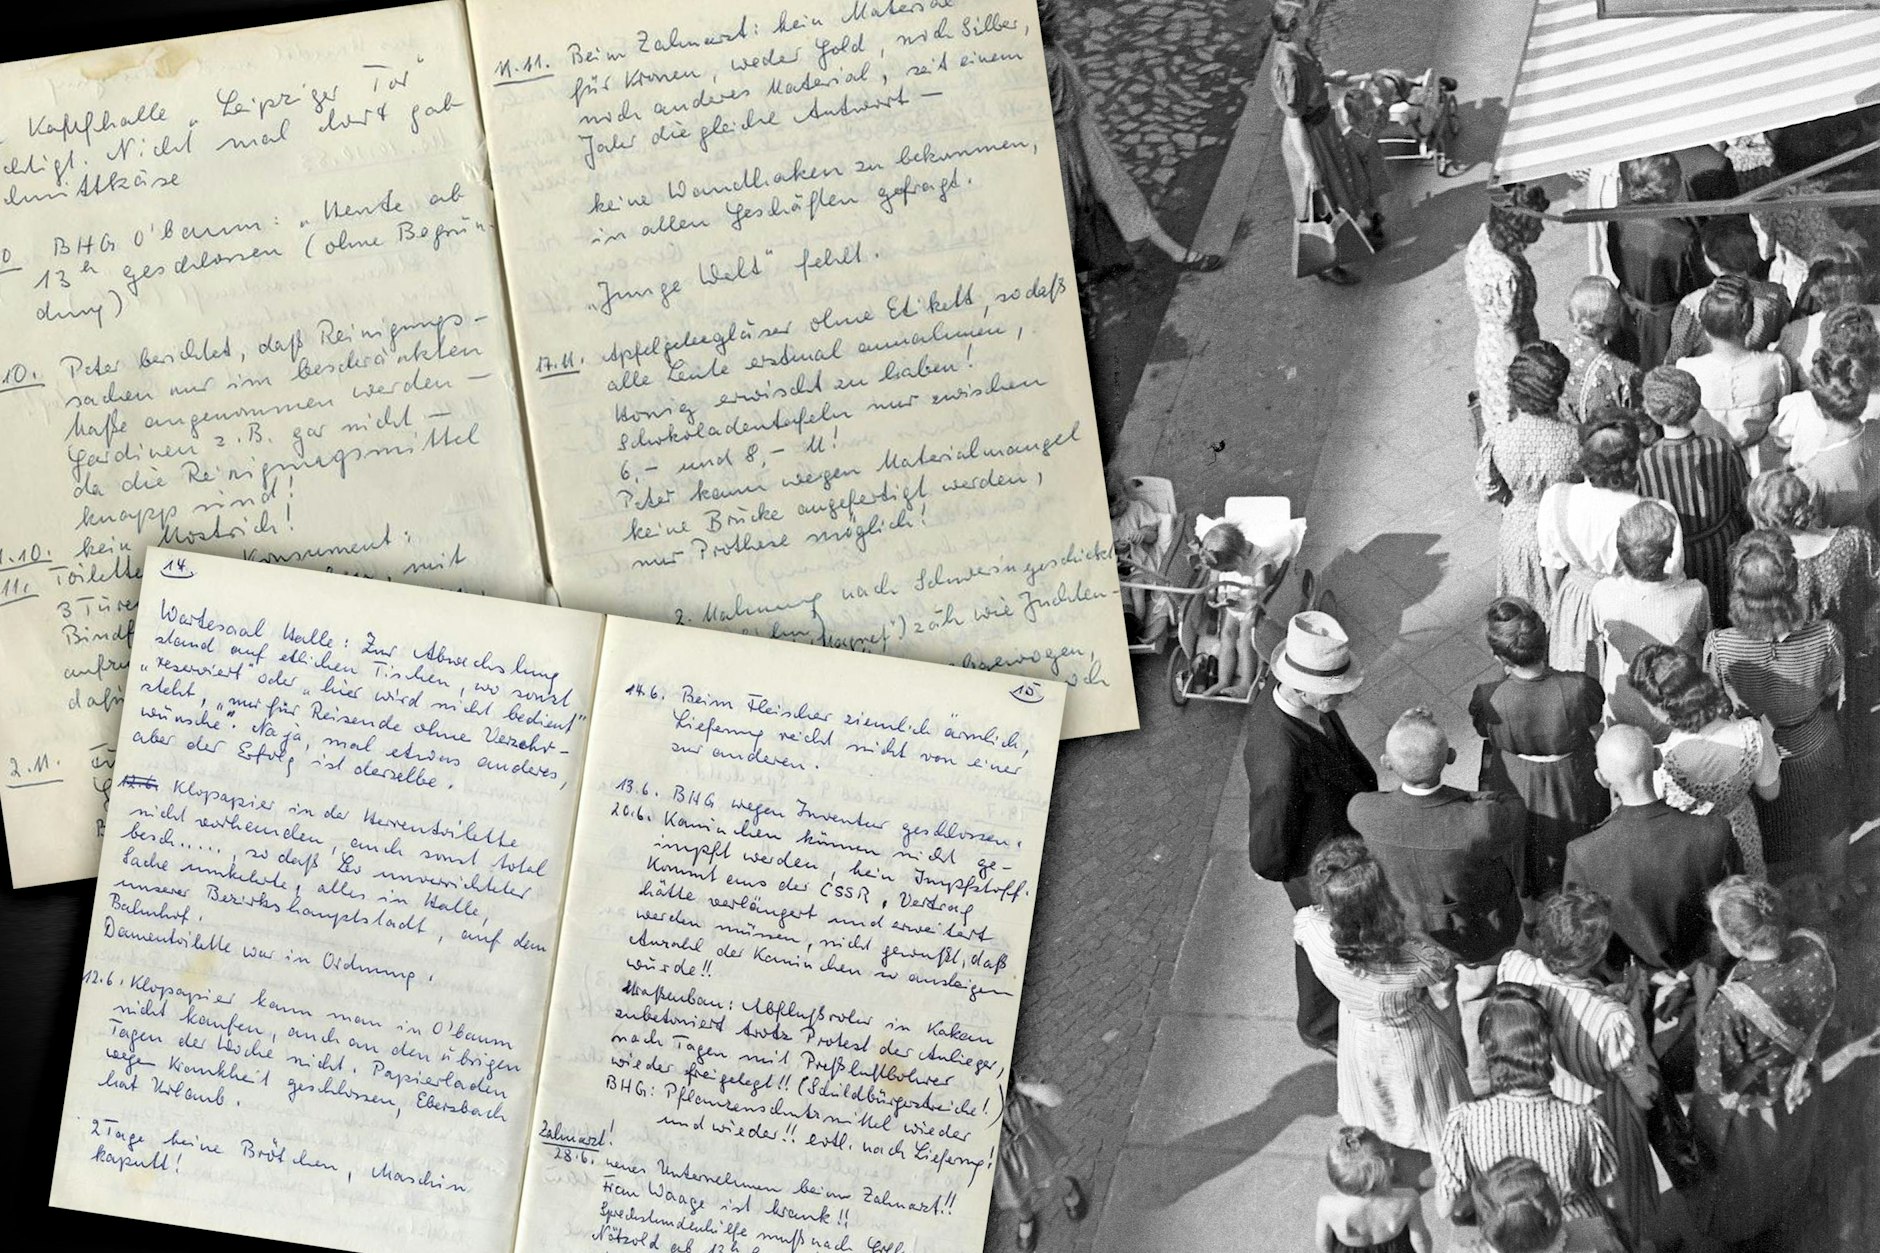 Kaufhalle „Leipziger Tor"
Nicht mal dort gab
BHG O'baum: „Heute ab
13 h geschlossen (ohne Begrün-
dung)
10. Peter berichtet, daß Reinigungs-
sachen nur im beschränkten
Maße angenommen werden -
Gardinen z.B. gar nicht -
da die Reinigungsmittel
knapp sind!
kein Mostrich!
Konsument:
mit
2.11.
11.11. Beim Zahnarzt: kein Material
für Kronen, weder Gold, noch Silber,
noch anderes Material, seit einem
Jahr die gleiche Antwort -
keine Wandhaken zu bekommen,
in allen Geschäften gefragt.
„Junge Welt" fehlt.
17.11. Apfelgeleegläser ohne Etikett, sodaß
alle Leute erstmal annahmen,
Honig erwischt zu haben!
Schokoladentafeln nur zwischen
6,- und 8,- M!
Peter kann wegen Materialmangel
keine Brücke angefertigt werden,
nur Prothese möglich!
2. Mahnung nach Schwerin geschickt
zäh wie Juchten-
14.
Wartesaal Halle: Zur Abwechslung
stand auf etlichen Tischen, wo sonst
„reserviert" oder „hier wird nicht bedient"
steht, „nur für Reisende ohne Verzehr-
wünsche". Na ja, mal etwas anderes,
aber der Erfolg ist derselbe.
12.6. Klopapier in der Herrentoilette
nicht vorhanden, auch sonst total
besch....., so daß Leo unverrichteter
Sache umkehrte, alles in Halle,
unserer Bezirkshauptstadt, auf dem
Bahnhof.
Damentoilette war in Ordnung.
12.6. Klopapier kann man in O'baum
nicht kaufen, auch an den übrigen
Tagen der Woche nicht. Papierladen
wegen Krankheit geschlossen, Ebersbach
hat Urlaub.
2 Tage keine Brötchen, Maschin
kaputt!
15.
14.6. Beim Fleischer ziemlich ärmlich,
Lieferung reicht nicht von einer
zur anderen.
13.6. BHG wegen Inventur geschlossen.
20.6. Kaninchen können nicht ge-
impft werden, kein Impfstoff.
Kommt aus der CSSR, Vertrag
hätte verlängert und erweitert
werden müssen, nicht gewußt, daß
Anzahl der Kaninchen so ansteigen
würde!!
Straßenbau: Abflußrohr in Kakau
zubetoniert trotz Protest der Anlieger,
nach Tagen mit Preßluftbohrer
wieder freigelegt!! (Schildbürgerstreiche!)
BHG: Pflanzenschutzmittel wieder
und wieder!! evtl. nach Lieferung!
Zahnarzt!
28.6. neues Unternehmen beim Zahnarzt!!
Frau Waage ist krank!!
Sprechstundenhilfe muß nach
Nätzold ab 12 h